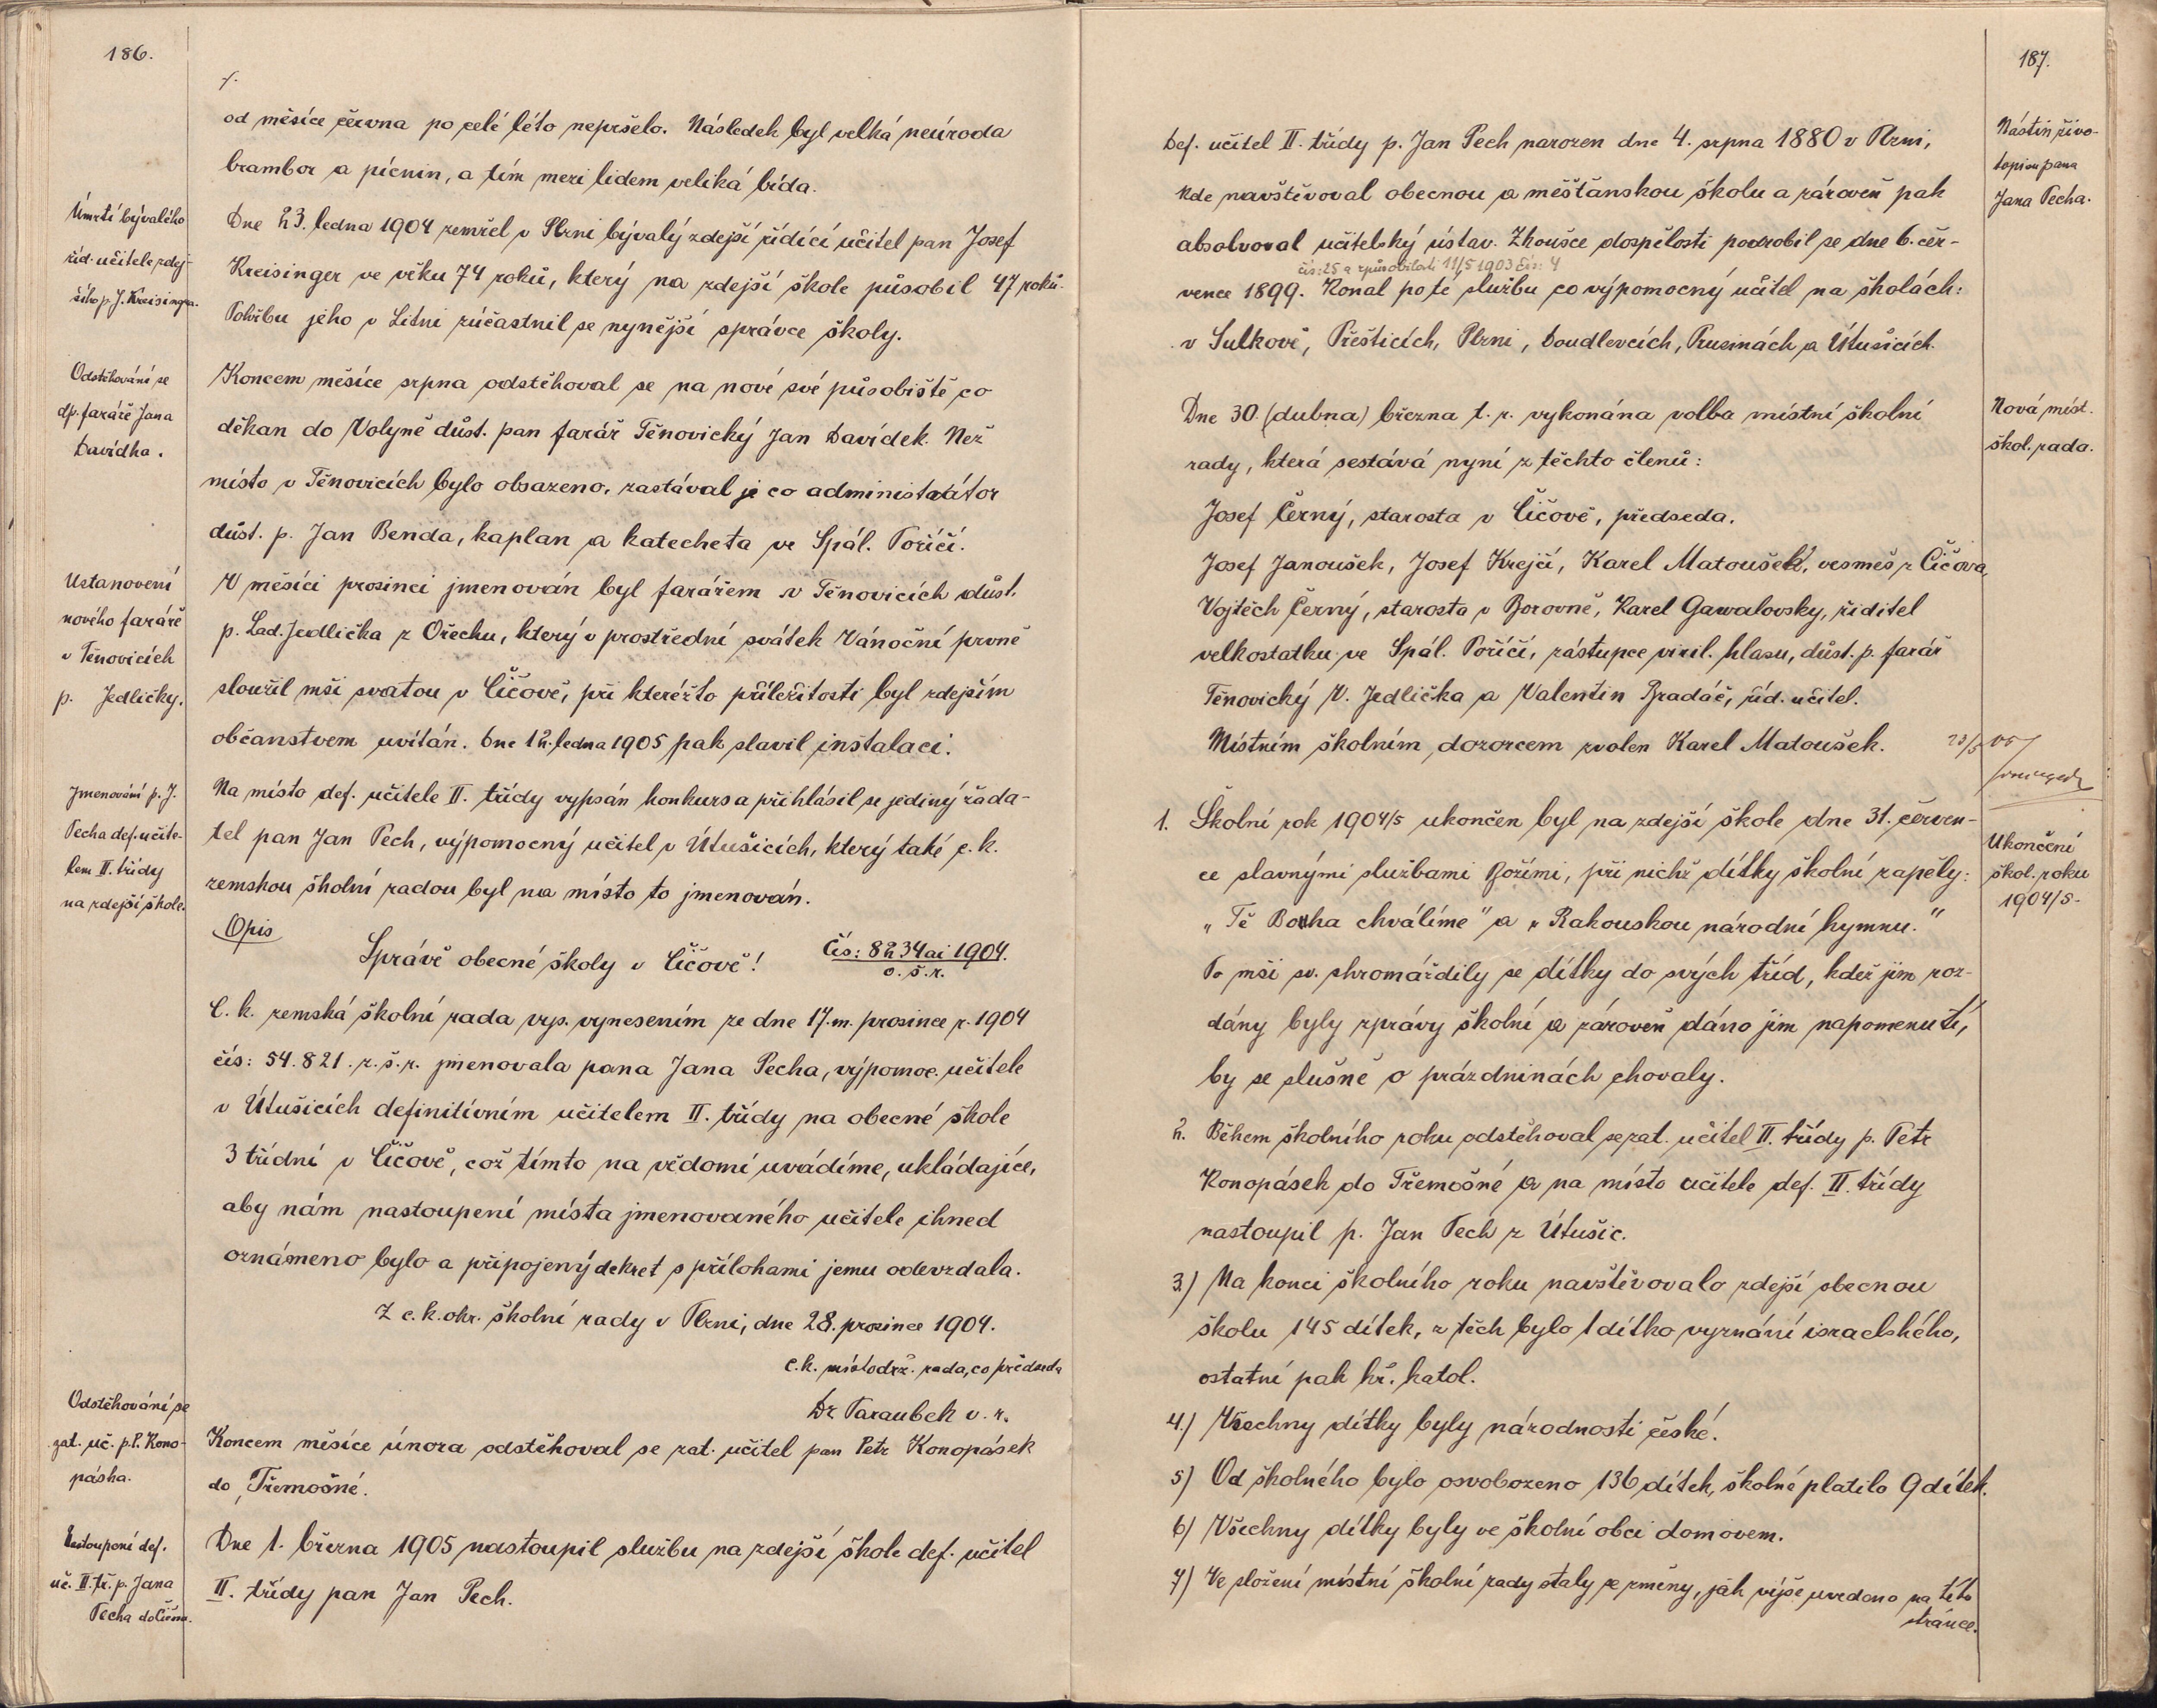 186.
./.
od měsíce června po celé léto nepršelo. Následek byl velká neúroda
brambor a pícnin, a tím mezi lidem veliká bída.
Úmrtí bývalého
říd. učitele zdej-
šího p. J. Kreisingra.
Dne 23. ledna 1904 zemřel v Plzni bývalý zdejší řídící učitel pan Josef
Kreisinger ve věku 74 roků, který na zdejší škole působil 47 roků.
Pohřbu jeho v Litni zúčastnil se nynější správce školy.
Odstěhování se
dp. faráře Jana
Davídka.
Koncem měsíce srpna odstěhoval se na nové své působiště co
děkan do Volyně důst. pan farář Těnovický Jan Davídek. Než
místo v Těnovicích bylo obsazeno, zastával je co administrátor
důst. p. Jan Benda, kaplan a katecheta ve Spál. Poříčí.
Ustanovení
nového faráře
v Těnovicích
p. Jedličky.
V měsíci prosinci jmenován byl farářem v Těnovicích důst.
p. Lad. Jedlička z Ořechu, který v prostřední svátek Vánoční prvně
sloužil mši svatou v Číčově, při kteréžto příležitosti byl zdejším
občanstvem uvítán. Dne 12. ledna 1905 pak slavil instalaci.
Jmenování p. J.
Pecha def. učite-
lem II. třídy
na zdejší škole.
Na místo def. učitele II. třídy vypsán konkurs a přihlásil se jediný žada-
tel pan Jan Pech, výpomocný učitel v Útušicích, který také c. k.
zemskou školní radou byl na místo to jmenován.
Opis
Správě obecné školy v Číčově!
Čís: 8234 ai 1904.
o. š. r.
C. k. zemská školní rada vys. vynesením ze dne 17. m. prosince r. 1904
čís: 54.821. z. š. r. jmenovala pana Jana Pecha, výpomoc. učitele
v Útušicích definitívním učitelem II. třídy na obecné škole
3 třídní v Číčově, což tímto na vědomí uvádíme, ukládajíce,
aby nám nastoupení místa jmenovaného učitele ihned
oznámeno bylo a připojený dekret s přílohami jemu odevzdala.
Z c. k. okr. školní rady v Plzni, dne 28. prosince 1904.
c. k. místodrž. rada, co předseda
Dr Taraubek v. r.
Odstěhování se
zat. uč. p. P. Kono-
páska.
Koncem měsíce února odstěhoval se zat. učitel pan Petr Konopásek
do Třemošné.
Nastoupení def.
uč. II. tř. p. Jana
Pecha do Číčova.
Dne 1. března 1905 nastoupil službu na zdejší škole def. učitel
II. třídy pan Jan Pech.
187.
Nástin živo-
topisu pana
Jana Pecha.
Def. učitel II. třídy p. Jan Pech narozen dne 4. srpna 1880 v Plzni,
kde navštěvoval obecnou a měšťanskou školu a zároveň pak
absolvoval učitelský ústav. Zkoušce dospělosti podrobil se dne 6. čer-
čís: 25 a způsobilosti 11/5 1903 čís: 4
vence 1899. Konal poté službu co výpomocný učitel na školách:
v Sulkově, Přešticích, Plzni, Doudlevcích, Prusinách a Útušicích.
Nová míst.
škol. rada.
Dne 30. (dubna) března t. r. vykonána volba místní školní
rady, která sestává nyní z těchto členů:
Josef Černý, starosta v Číčově, předseda.
Josef Janoušek, Josef Krejčí, Karel Matoušek, vesměs z Číčova,
Vojtěch Černý, starosta v Borovně, Karel Gawalovsky, řiditel
velkostatku ve Spál. Poříčí, zástupce viril. hlasu, důst. p. farář
Těnovický V. Jedlička a Valentin Bradáč, říd. učitel.
Místním školním dozorcem zvolen Karel Matoušek.
23/5 05
Ukončení
škol. roku
1904/5.
1. Školní rok 1904/5 ukončen byl na zdejší škole dne 31. červen-
ce slavnými službami Božími, při nichž dítky školní zapěly:
„Tě Boha chválíme" a „Rakouskou národní hymnu."
Po mši sv. shromáždily se dítky do svých tříd, kdež jim roz-
dány byly zprávy školní a zároveň dáno jim napomenutí,
by se slušně o prázdninách chovaly.
2. Během školního roku odstěhoval se zat. učitel II. třídy p. Petr
Konopásek do Třemošné a na místo učitele def. II. třídy
nastoupil p. Jan Pech z Útušic.
3.) Na konci školního roku navštěvovalo zdejší obecnou
školu 145 dítek, z těch bylo 1 dítko vyznání israelského,
ostatní pak kř. katol.
4.) Všechny dítky byly národnosti české.
5) Od školného bylo osvobozeno 136 dítek, školné platilo 9 dítek.
6) Všechny dítky byly ve školní obci domovem.
7) Ve složení místní školní rady staly se změny, jak výše uvedeno na této
stránce.